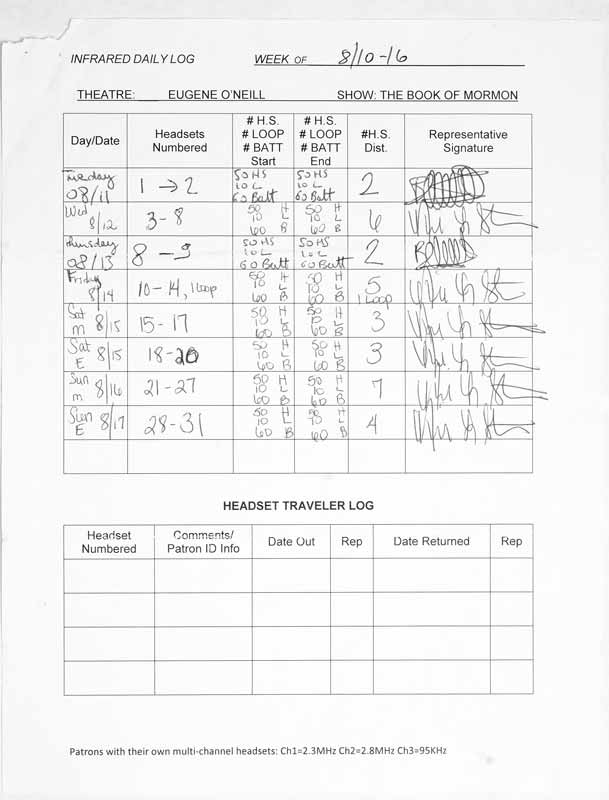 INFRARED DAILY LOG WEEK OF 8/10-16
THEATRE: EUGENE O'NEILL SHOW: THE BOOK OF MORMON
Day/Date Headsets Numbered # H.S. # LOOP # BATT Start # H.S. # LOOP # BATT End #H.S. Dist. Representative Signature
Tuesday 08/11 1 → 2 50 HS 10 L 60 Batt 50 HS 10 L 60 Batt 2
Wed 8/12 3-8 50 H 10 L 60 B 50 H 10 L 60 B 6
Thursday 08/13 8 - 9 50 HS 10 L 60 Batt 50 HS 10 L 60 Batt 2
Friday 8/14 10-14, 1 loop 50 H 10 L 60 B 50 H 10 L 60 B 5 1 Loop
Sat M 8/15 15-17 50 H 10 L 60 B 50 H 10 L 60 B 3
Sat E 8/15 18-20 50 H 10 L 60 B 50 H 10 L 60 B 3
Sun M 8/16 21-27 50 H 10 L 60 B 50 H 10 L 60 B 7
Sun E 8/17 28-31 50 H 10 L 60 B 50 H 10 L 60 B 4
HEADSET TRAVELER LOG
Headset Numbered Comments/ Patron ID Info Date Out Rep Date Returned Rep
Patrons with their own multi-channel headsets: Ch1=2.3MHz Ch2=2.8MHz Ch3=95KHz